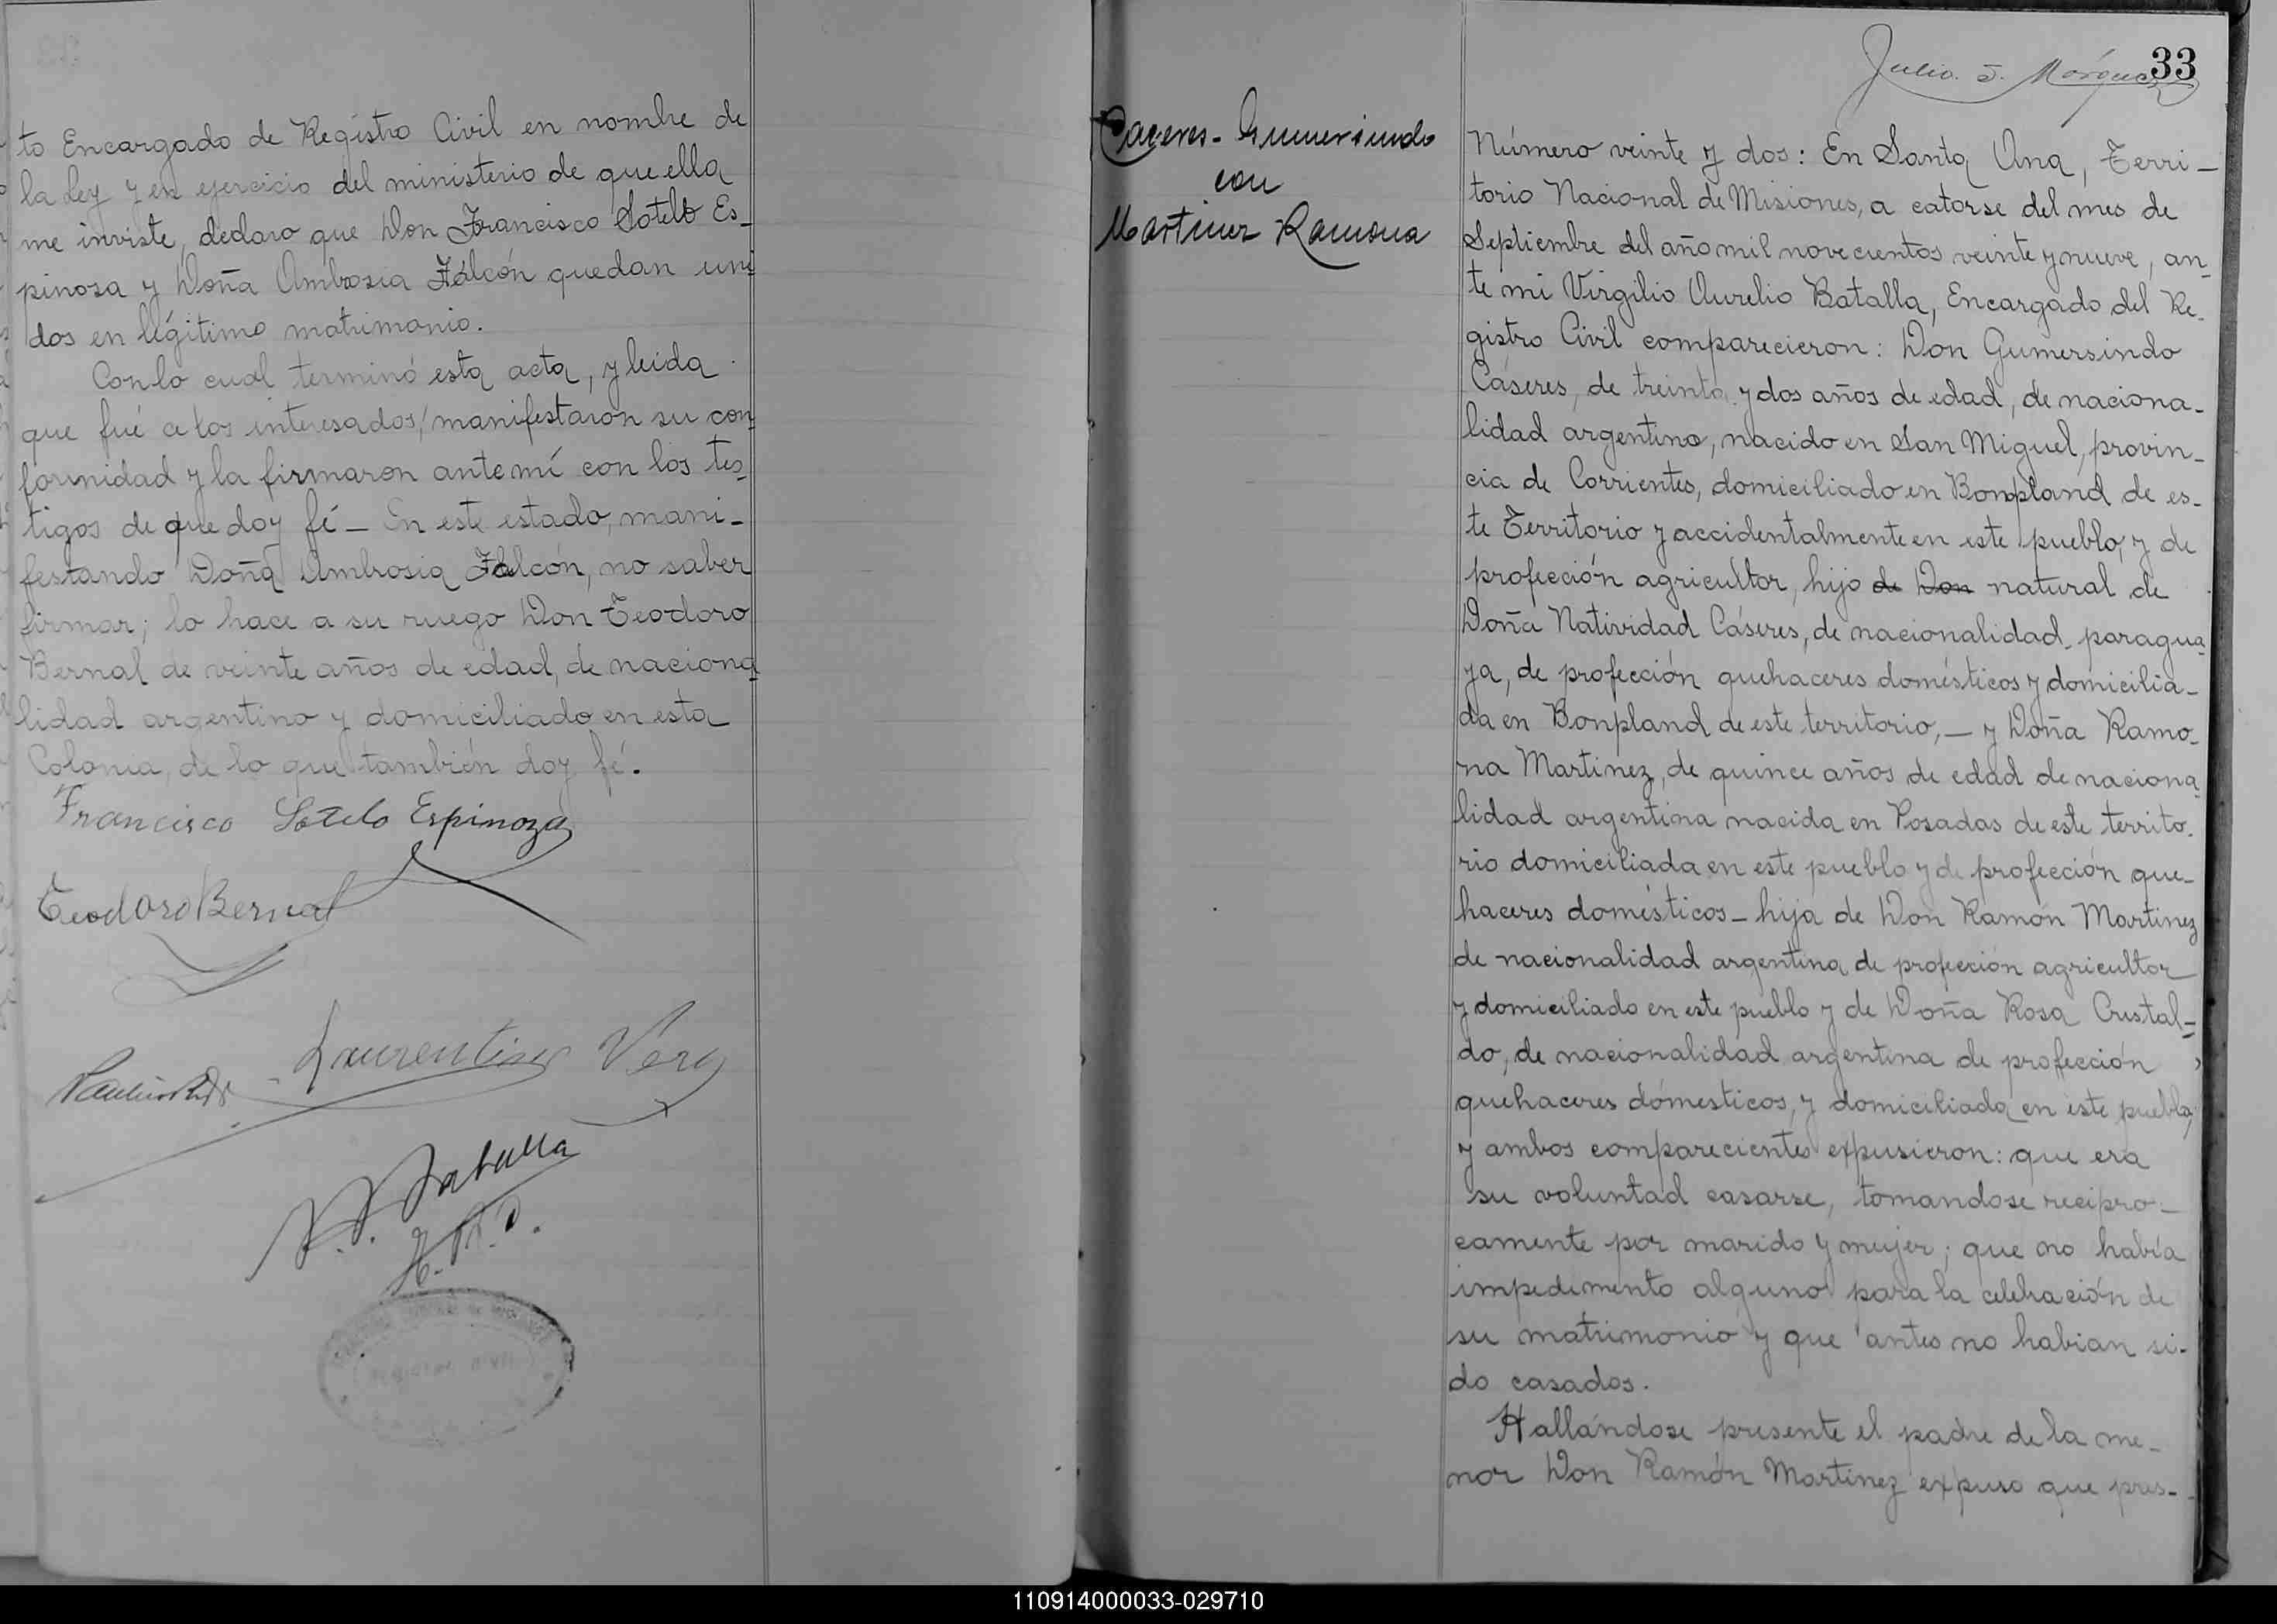 to Encargado de Registro Civil en nombre de
la Ley y en ejercicio del ministerio de que ella
me inviste, declaro que Don Francisco Sotelo Es-
pinosa y Doña Ambrosia Falcón quedan uni
dos en légitimo matrimonio.
Con lo cual terminó esta acta, y leida
que fué a los interesados, manifestaron su con
formidad y la firmaron ante mí con los tes-
tigos de que doy fé – En este estado, mani-
festando Doña Ambrosia Falcón, no saber
firmar; lo hace a su ruego Don Teodoro
Bernal de veinte años de edad, de naciona
lidad argentino y domiciliado en esta
Colonia, de lo que también doy fé.
Francisco Sotelo Espinoza
Teodoro Bernal
Laurentino Vera
Batalla
REGISTRO CIVIL
33
Julio S. Márquez
Caceres - Gumersindo
con
Martinez Ramona
Número veinte y dos: En Santa Ana, Terri-
torio Nacional de Misiones, a catorse del mes de
Septiembre del año mil novecientos veinte y nueve, an-
te mi Virgilio Aurelio Batalla, Encargado del Re-
gistro Civil comparecieron: Don Gumersindo
Cáseres, de treinta y dos años de edad, de naciona-
lidad argentino, nacido en San Miguel, provin-
cia de Corrientes, domiciliado en Bonpland de es-
te Territorio y accidentalmente en este pueblo, y de
profección agricultor, hijo de Don natural de
Doña Natividad Cáseres, de nacionalidad paragua-
ya, de profección quehaceres domésticos y domicilia-
da en Bonpland de este territorio, – y Doña Ramo-
na Martinez, de quince años de edad de naciona-
lidad argentina nacida en Posadas de este territo-
rio domiciliada en este pueblo y de profección que-
haceres domésticos – hija de Don Ramón Martinez
de nacionalidad argentina de profección agricultor
y domiciliado en este pueblo y de Doña Rosa Cristal-
do, de nacionalidad argentina de profección
quehaceres dómesticos, y domiciliada en este pueblo,
y ambos comparecientes expusieron: que era
su voluntad casarse, tomandose recipro-
camente por marido y mujer; que no había
impedimento alguno para la celebración de
su matrimonio y que antes no habian si-
do casados.
Hallándose presente el padre de la me-
nor Don Ramón Martinez expuso que pres-
110914000033-029710